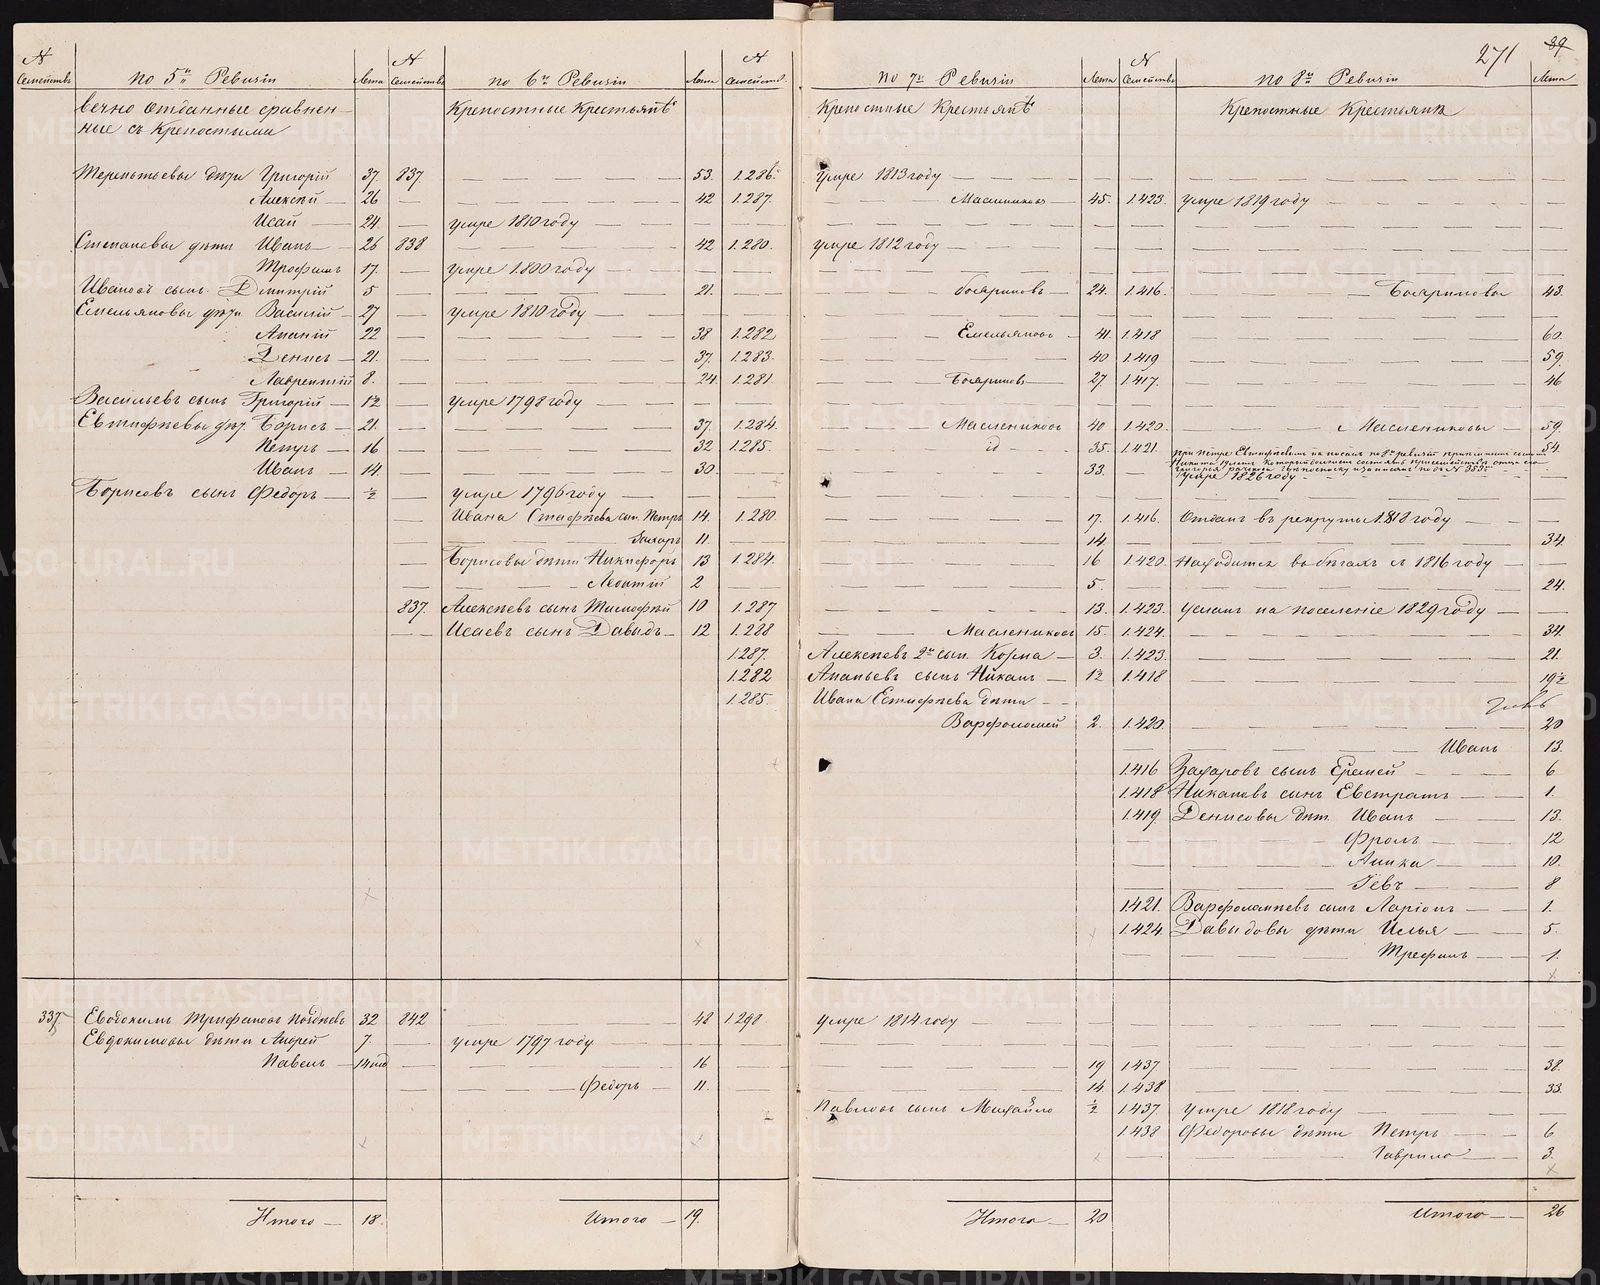 271 39
№ Семействъ По 5й Ревизіи Лета № Семействъ По 6й Ревизіи Лета № Семейств. По 7й Ревизіи Лета № Семействъ По 8й Ревизіи Лета
вечно отданные сравнен- Крепостные Крестьянѣ Крепостные Крестьянѣ Крепостные Крестьяня
ные съ Крепостыми
Терентьевы дѣти Григорій 37 837 53 1.286 умре 1813 году
Алексѣй 26 42 1.287 Маслениковъ 45 1.423 умре 1819 году
Исай 24 умре 1810 году
Степановы дѣти Иванъ 26 838 42 1.280 умре 1812 году
Трофимъ 17 умре 1.800 году
Ивановъ сынъ Дмитрій 5 21 бояриновъ 24 1.416 Бояриновы 43
Емельяновы дѣти Василій 27 умре 1810 году
Ананій 22 38 1.282 Емельяновъ 41 1.418 60
Денисъ 21 37 1.283 40 1.419 59
Лаврентій 8 24 1.281 Бояриновъ 27 1.417 46
Васильевъ сынъ Григорій 12 умре 1798 году
Евтифѣевы дѣт. Борисъ 21 37 1.284 Маслениковъ 40 1.420 Маслениковы 59
Петръ 16 32 1.285 id 35 1.421 54
Иванъ 14 30 33 умре 1826 году
Борисовъ сынъ Федоръ ½ умре 1796 году
Ивана Евтифѣева сын. Петръ 14 1.280 17 1.416 Отданъ въ рекруты 1818 году
Захаръ 11 14 34
Борисовы дѣти Никифоръ 13 1.284 16 1.420 Находится въ бѣгахъ съ 1816 году
Леонтій 2 5 24
837 Алексѣевъ сынъ Тимофѣй 10 1.287 13 1.423 Усланъ на поселеніе 1829 году
Исаевъ сынъ Давыдъ 12 1.288 Маслениковъ 15 1.424 34
1.287 Алексѣевъ 2й сын. Козма 3 1.423 21
1.282 Ананьевъ сынъ Никанъ 1½ 1.418 19½
1.285 Ивана Евтифѣева дѣти
Варфоломей 2 1.420 20
Иванъ 13
1.416 Захаровъ сынъ Еремей 6
1.418 Никановъ сынъ Евстратъ 1
1.419 Денисовы дѣт. Иванъ 13
Фролъ 12
Аника 10
Іевъ 8
1.421 Варфоломѣевъ сынъ Ларіонъ 1
1.424 Давыдовы дѣти Илья 5
Трефилъ 1
337 Евдокимъ Трифановъ Позднѣевъ 32 842 48 1.298 умре 1814 году
Евдокимовы дѣти Андрей 7 умре 1797 году
Павелъ 14 нед 16 19 1.437 38
Федоръ 11 14 1.438 33
Павловъ сынъ Михайло ½ 1.437 умре 1818 году
1.438 Федоровы дѣти Петръ 6
Гаврило 3
Итого 18 Итого 19 Итого 20 Итого 26
METRIKI.GASO-URAL.RU